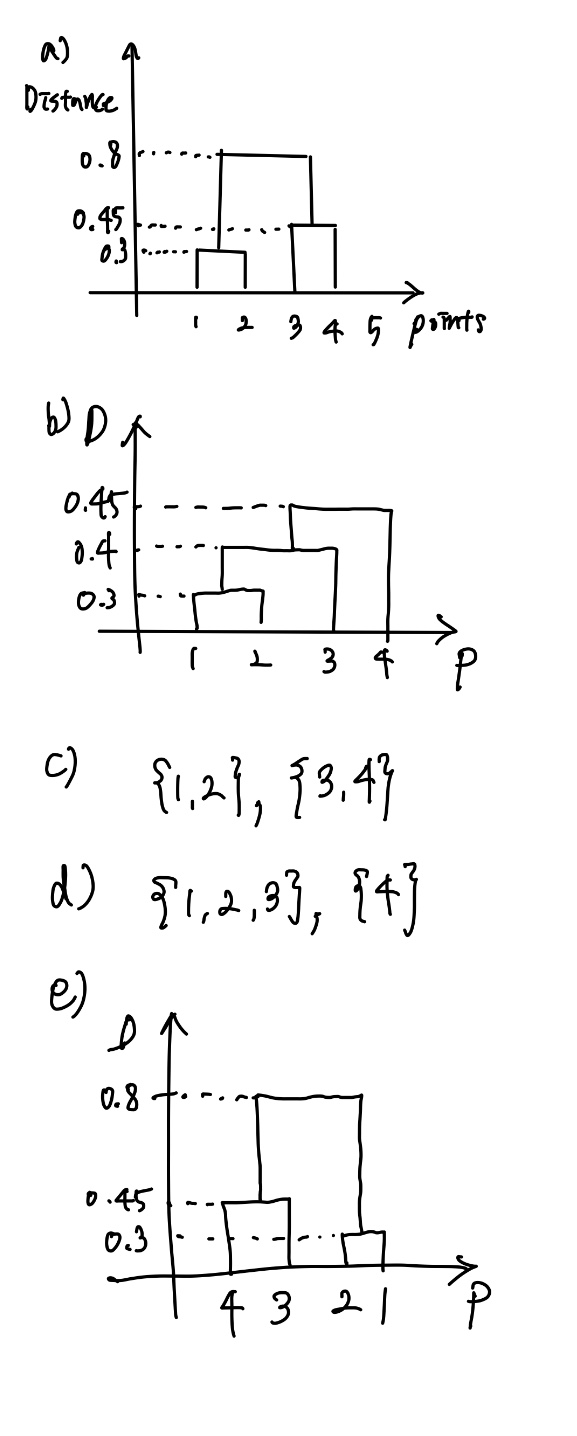 a)
Distance
0.8
0.45
0.3
1 2 3 4 5 points
b) D
0.45
0.4
0.3
1 2 3 4 P
c) {1,2}, {3,4}
d) {1,2,3}, {4}
e)
D
0.8
0.45
0.3
4 3 2 1 P